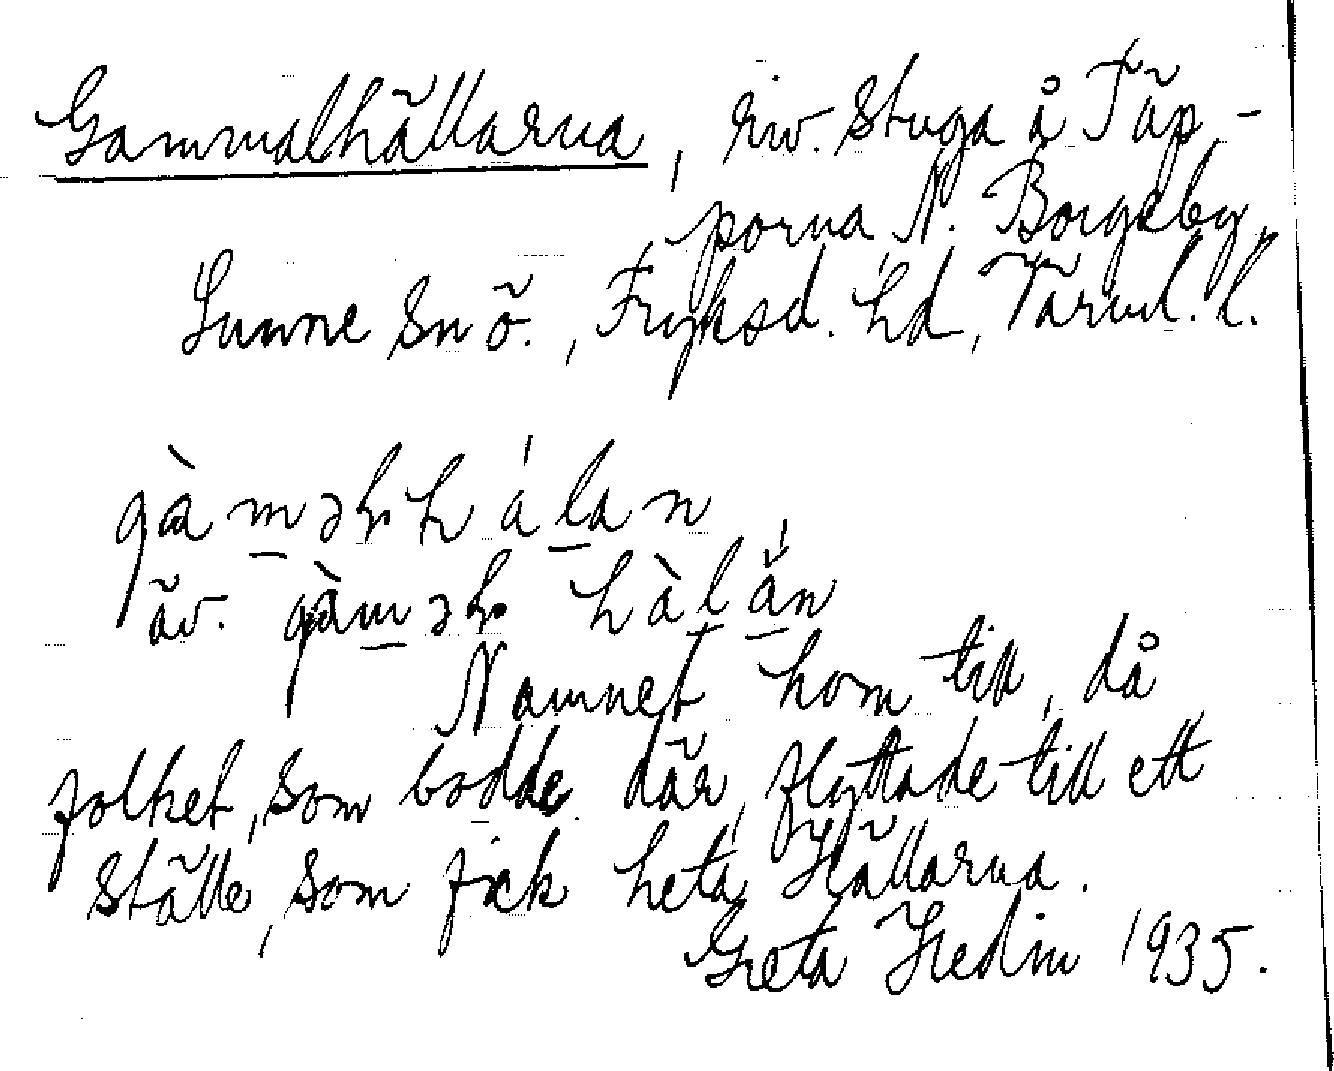 Gammalhällarna, riv. stuga å Täp-
porna N. Borgeby,
Sunne sn ö., Fryksd. hd, Värml. l.
gàməḷhálan
äv. gàməḷ hàlán
Namnet kom till, då
folket, som bodde där, flyttade till ett
ställe, som fick heta Hällarna.
Greta Hedin 1935.